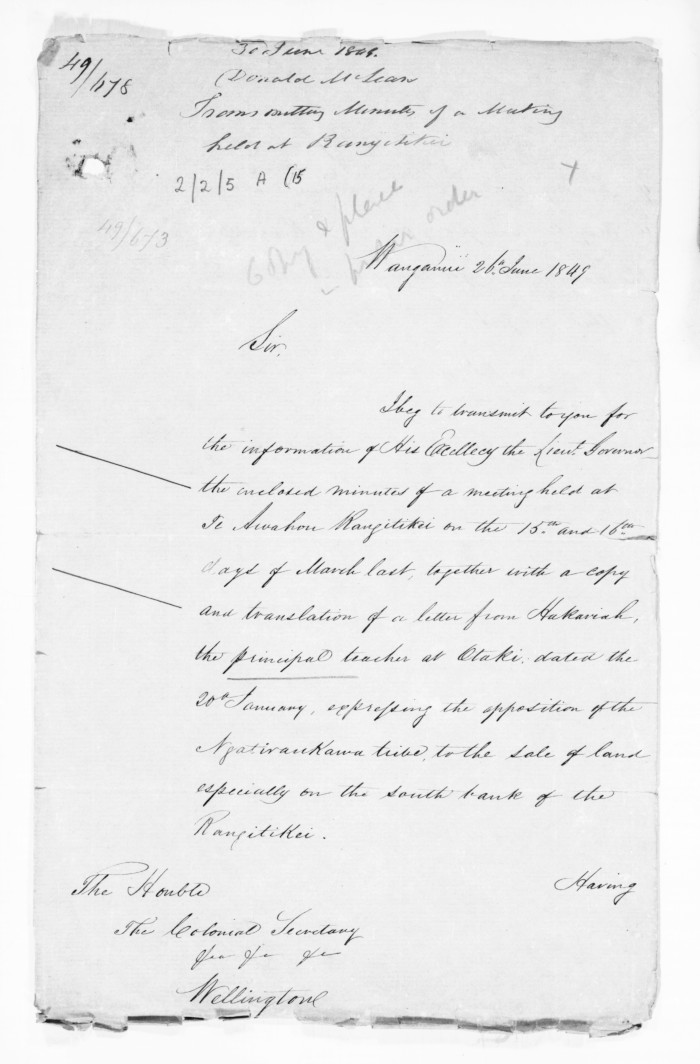 49/678
26 June 1849.
Donald McLean
Transmitting Minutes of a Meeting
held at Rangitikei
2/2/5 A (15
+
49/673
Copy & place
in order
Wanganui 26th June 1849
Sir,
I beg to transmit to you for
the information of His Excellecy the Lieut. Governor
the enclosed minutes of a meeting held at
Te Awahou Rangitikei on the 15th and 16th
days of March last, together with a copy
and translation of a letter from Hakaraiah,
the principal teacher at Otaki, dated the
20th January, expressing the opposition of the
Ngatiraukawa tribe, to the sale of land
especially on the south bank of the
Rangitikei.
Having
The Honble
The Colonial Secretary
&c &c &c
Wellington